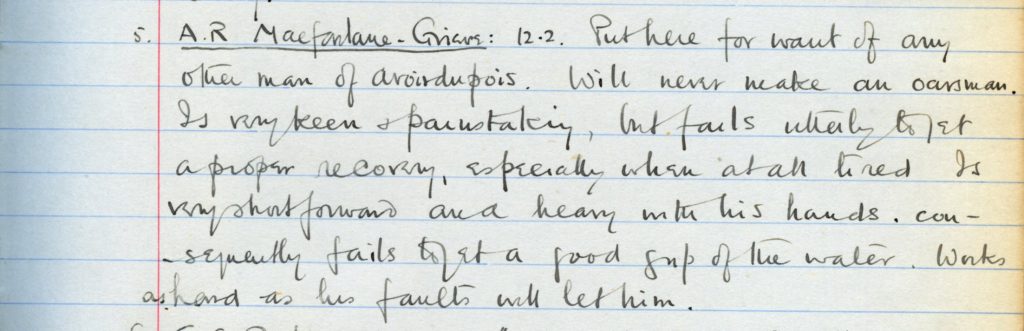 5. A.R Macfarlane-Grieve: 12.2. Put here for want of any
other man of avoirdupois. Will never make an oarsman.
Is very keen & painstaking, but fails utterly to get
a proper recovery, especially when at all tired Is
very short forward and heavy with his hands. con-
-sequently fails to get a good grip of the water. Works
as hard as his faults will let him.